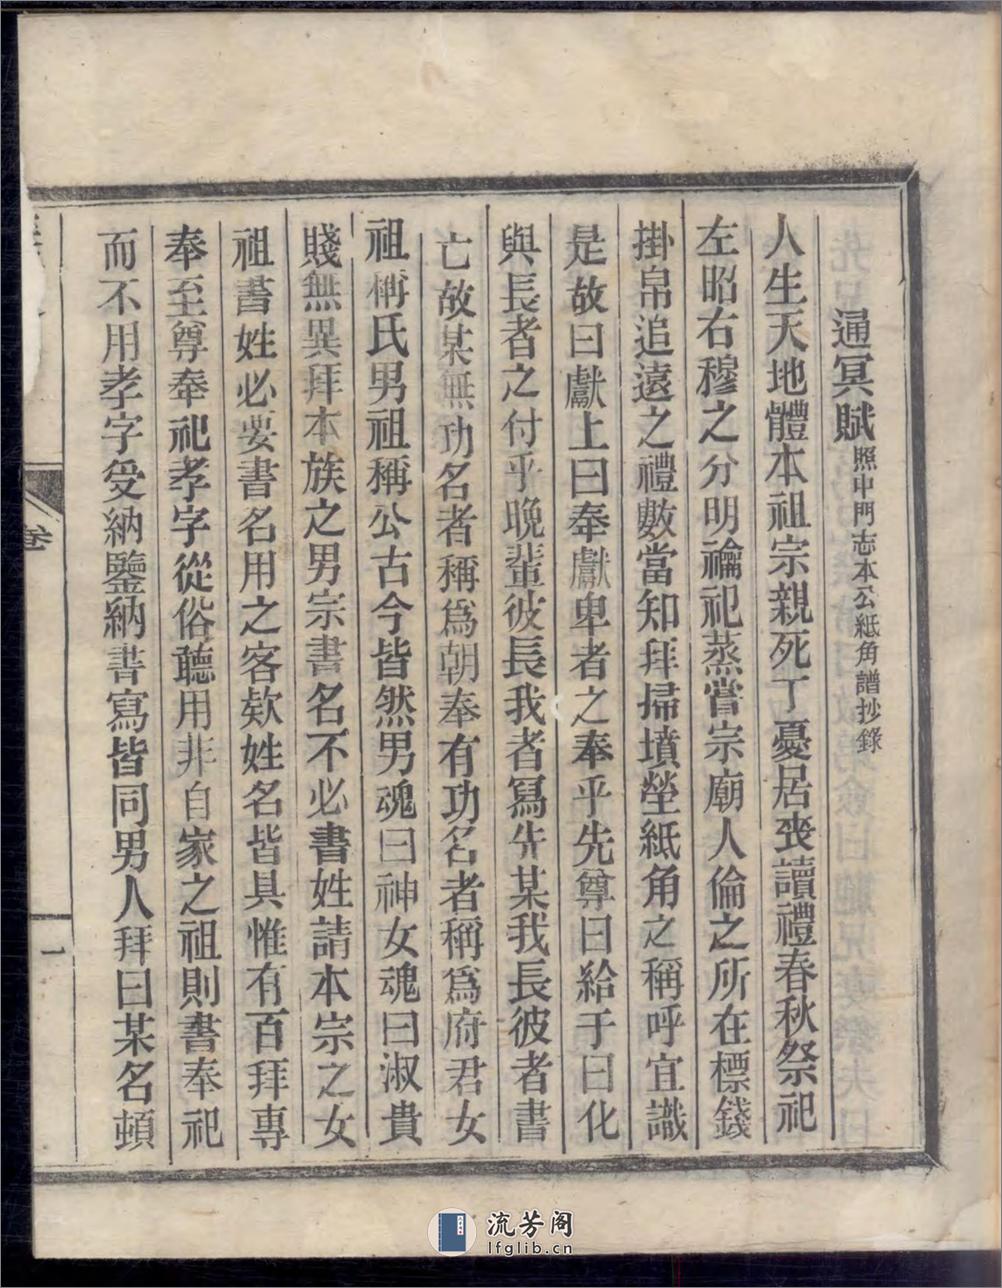 通冥賦 照中門志本公紙角譜抄錄
人生天地體本祖宗親死丁憂居喪讀禮春秋祭祀
左昭右穆之分明禴祀蒸嘗宗廟人倫之所在標錢
掛帛追遠之禮數當知拜掃墳塋紙角之稱呼宜識
是故曰獻上曰奉獻卑者之奉乎先尊曰給于曰化
與長者之付乎晚輩彼長我者寫先某我長彼者書
亡故某無功名者稱爲朝奉有功名者稱爲府君女
祖稱氏男祖稱公古今皆然男魂曰神女魂曰淑貴
賤無異拜本族之男宗書名不必書姓請本宗之女
祖書姓必要書名用之客欵姓名皆具惟有百拜專
奉至尊奉祀孝字從俗聽用非自家之祖則書奉祀
而不用孝字受納鑒納書寫皆同男人拜曰某名頓
卷
一
流芳阁
lfglib.cn